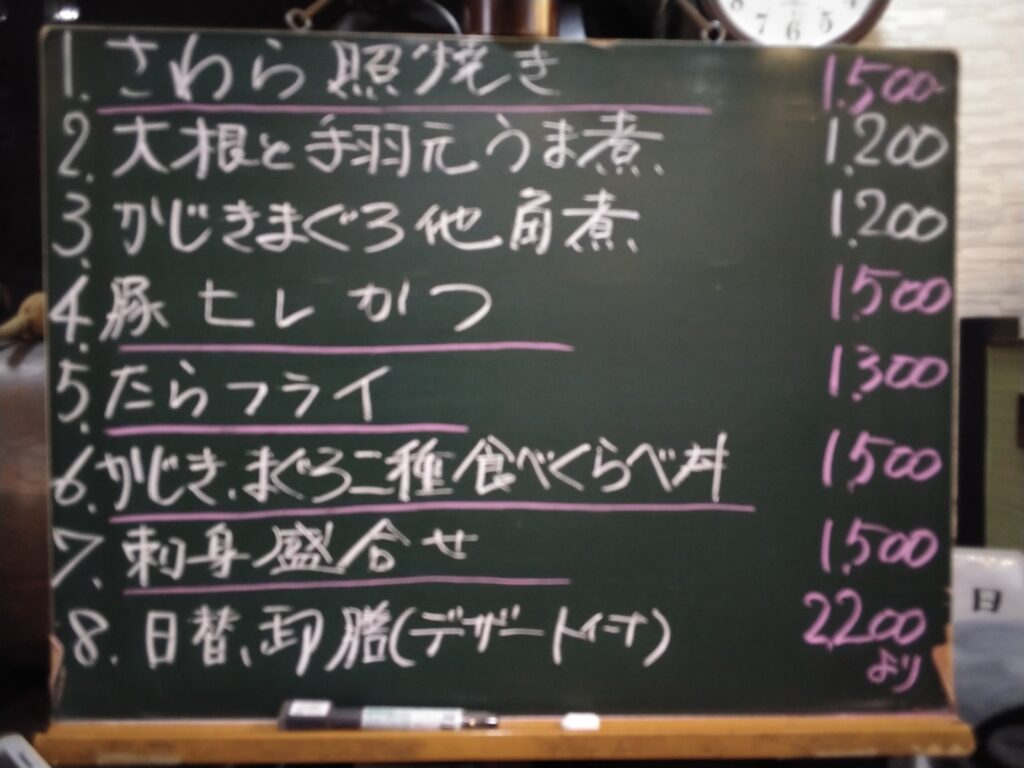 1. さわら 照焼き 1,500
2. 大根と手羽元うま煮 1,200
3. かじきまぐろ他角煮 1,200
4. 豚ヒレかつ 1,500
5. たらフライ 1,300
6. かじき、まぐろ二種食べくらべ丼 1,500
7. 刺身盛合せ 1,500
8. 日替、卸膳(デザート付) 2,200
より
日
8 7 6 5 4